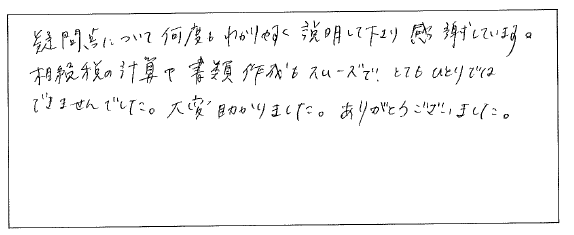 疑問点について何度もわかりやすく説明して下さり感謝しています。
相続税の計算や書類作成もスムーズで、とてもひとりでは
できませんでした。大変助かりました。ありがとうございました。